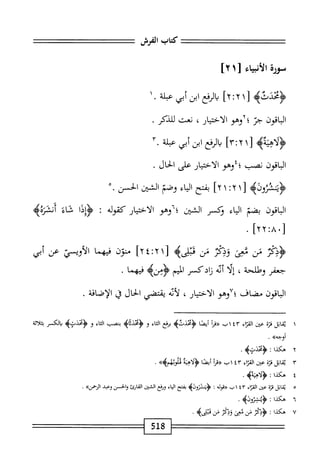 كتاب الفرش
سورة الأنبياء [٢١]
﴿مُّحْدَثٌ﴾ [٢:٢١] بالرفع ابن أبي عبلة .١
الباقون جرّ ؛٢وهو الاختيار ، نعت للذكر .
﴿لَاهِيَةٌ﴾ [٣:٢١] بالرفع ابن أبي عبلة .٣
الباقون نصب ؛٤وهو الاختيار على الحال .
﴿يَنشُرُونَ﴾ [٢١:٢١] بفتح الياء وضمّ الشين الحسن .٥
الباقون بضمّ الياء وكسر الشين ؛٦وهو الاختيار كقوله : ﴿إِذَا شَاءَ أَنشَرَهُ﴾
[٢٢:٨٠] .
﴿ذِكْرٌ مَن مَّعِيَ وَذِكْرٌ مَن قَبْلِي﴾ [٢٤:٢١] منوّن فيهما الأويسيّ عن أبي
جعفر وطلحة ، إلّا أنّه زاد كسر الميم ﴿مِن﴾ فيهما .
الباقون مضاف ؛٧وهو الاختيار ، لأنّه يقتضي الحال في الإضافة .
١ يُقابل قرّة عين القرّاء ١٤٣ب «قرأ أيضًا ﴿مُحْدَثٌ﴾ برفع الثاء و ﴿مُحْدَثًا﴾ بنصب الثاء و ﴿مُحْدَثٍ﴾ بالكسر بثلاثة
أوجه» .
٢ هكذا : ﴿مُّحْدَثٍ﴾ .
٣ يُقابل قرّة عين القرّاء ١٤٣ب «قرأ أيضًا ﴿لَاهِيَةٌ قُلُوبُهُمْ﴾» .
٤ هكذا : ﴿لَاهِيَةً﴾ .
٥ يُقابل قرّة عين القرّاء ١٤٣ب «قوله : ﴿يَنشُرُونَ﴾ بفتح الياء ورفع الشين القارئ والحسن وعبد الرحمن» .
٦ هكذا : ﴿يُنشِرُونَ﴾ .
٧ هكذا : ﴿ذِكْرُ مَن مَّعِيَ وَذِكْرُ مَن قَبْلِي﴾ .
518